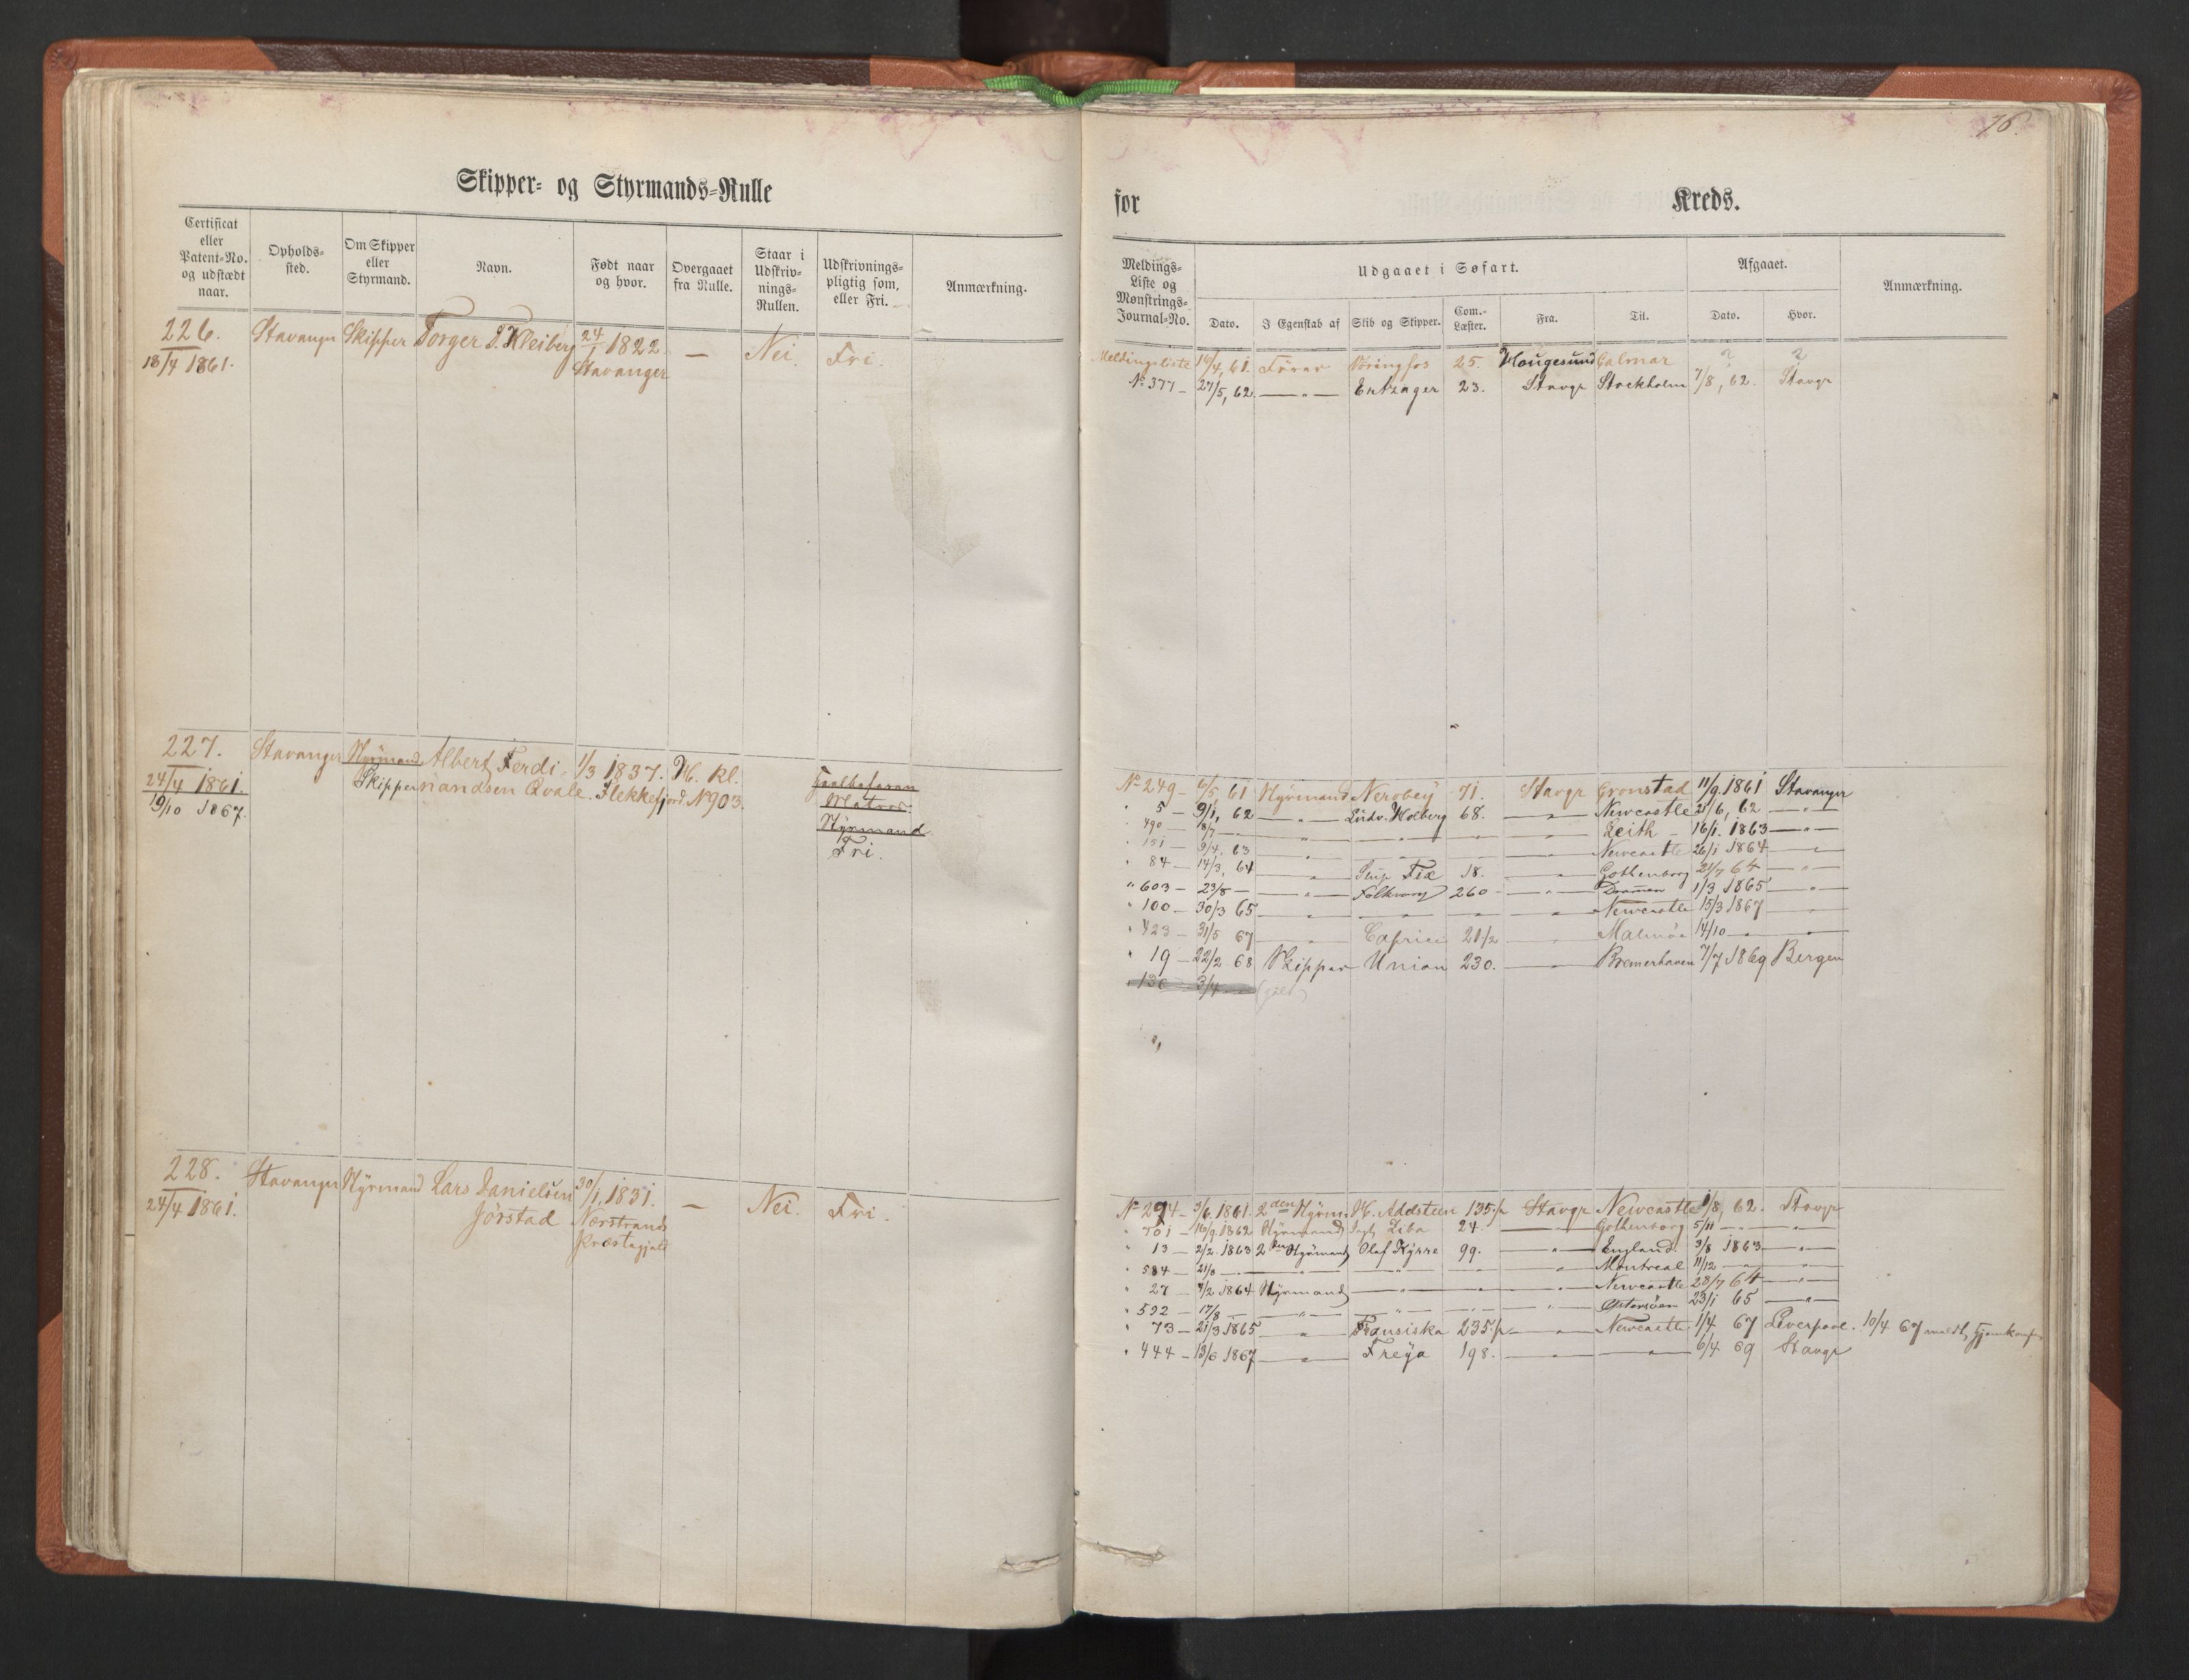 Skipper- og Styrmands-Rulle
Certificat eller Patent-No. og udstædt naar.
Opholds-sted.
Om Skipper eller Styrmand.
Navn.
Født naar og hvor.
Overgaaet fra Rulle.
Staar i Udskriv-nings-Rullen.
Udskrivnings-pligtig som, eller Fri.
Anmærkning.
226. Stavanger Skipper Torger T. Kleiberg 24/1 1822. — Nei. Fri.
18/4 1861. Stavanger
227. Stavanger Styrmand Albert Ferdi- 1/3 1837. H. Rl.
24/4 1861. Skipper nandsen Qvale. Flekkefjord N 903.
19/10 1867.
Matros
Styrmand
Fri.
228. Stavanger Styrmand Lars Danielsen 30/1 1831. — Nei. Fri.
24/4 1861. Jörstad Nærstrands
Præstegjeld
76.
for Kreds.
Meldings-Liste og Mønstrings-Journal-No.
Udgaaet i Søfart.
Dato.
I Egenskab af
Skib og Skipper.
Com.-Læster.
Fra.
Til.
Afgaaet.
Dato.
Hvor.
Anmærkning.
Meldingsliste 16/4, 61. Förer Vöringfos 25. Hougesund Calmar ? ?
No 377 — 27/5, 62. — " — 23. Stavgr Stockholm 7/8, 62. Stavgr
No 249 — 6/5 61 Styrmand Nerobey 71. Stavgr Cronstad 11/9 1861 Stavanger
" 5 — 9/1, 62 — " — Ludv. Holberg 68. — " — Newcastle 21/6, 62 — " —
" 490 — 8/7 — — " — — " — — " — — " — Leith — 16/1. 1863 — " —
" 151 — 9/4, 63 — " — — " — — " — — " — Newcastle 26/1 1864 — " —
" 84 — 14/3, 64 — " — Fix 18. — " — Gothenborg 21/7 64 — " —
" 603 — 23/8 — — " — Folkvang 260 — " — Drammen 1/3 1865 — " —
" 100 — 30/3 65 — " — — " — — " — — " — Newcastle 15/3 1867 — " —
" 423 — 31/5 67 — " — Caprice 21 1/2 — " — Malmöe 14/10 — — " —
" 19 — 22/2 68 Skipper Union 230. — " — Bremerhaven 7/7 1869 Bergen
" 136 3/4
No 294 — 3/6 1861. 2den Styrm. H. Addsteen 135 Stavgr Newcastle 1/8, 62. Stavgr
" 701 — 16/9 1862 Styrmand Ziba 24. — " — Gothenborg 5/11 — — " —
" 13 — 2/2. 1863 2den Styrmand Olaf Kyrre 99. — " — England 3/8 1863 — " —
" 584 — 21/8 — — " — — " — — " — — " — Montreal 11/12 — — " —
" 27 — 4/2 1864 Styrmand — " — — " — — " — Newcastle 28/7 64 — " —
" 592 — 17/8 — — " — — " — — " — — " — Østersöen 23/1 65 — " —
" 73 — 21/3 1865 — " — Fransiska 235 — " — Newcastle 1/4 67 Liverpool. 10/4 67 meldt Hjemkomst
" 444 — 13/6 1867 — " — Freya 198. — " — — " — 6/4 69 Stavgr